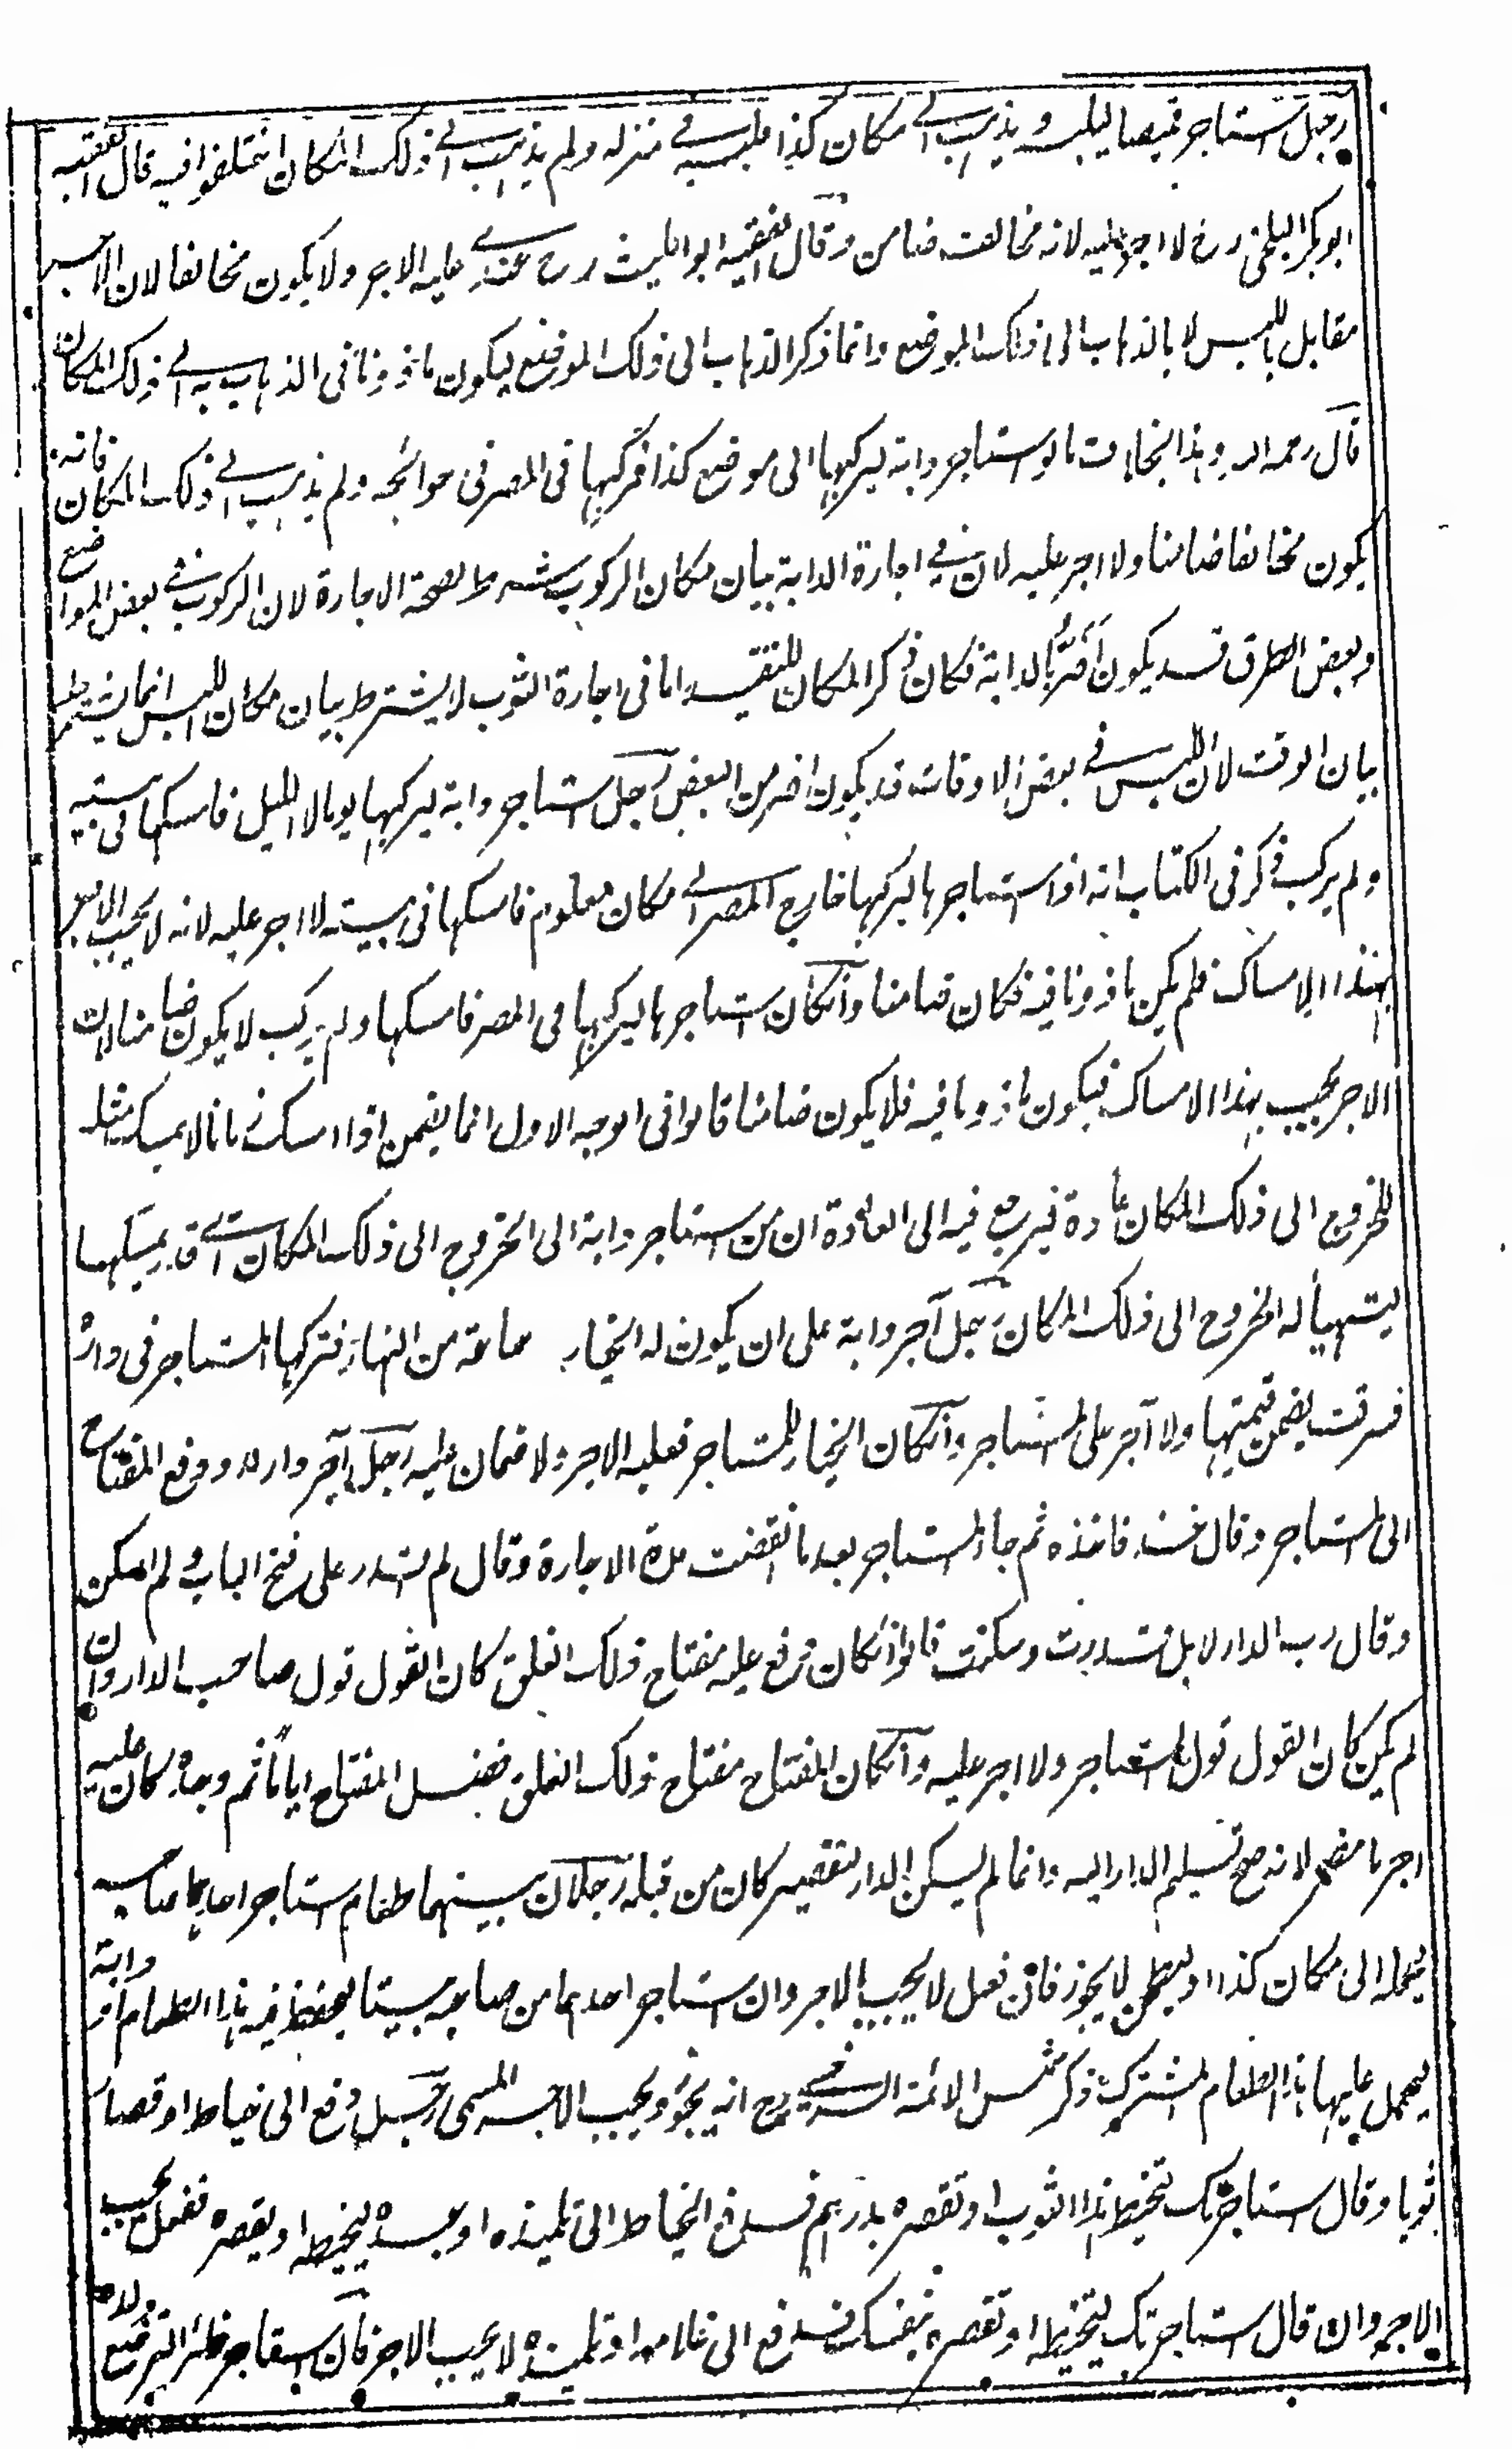 رجل استاجر قميصا ليلبسه ويذهب الى مكان كذا فلبسه في منزله ولم يذهب الى ذلك المكان اختلفوا فيه قال الفقيه
ابو بكر البلخي رح لا اجر عليه لانه مخالف ضامن وقال الفقيه ابو الليث رح عندي عليه الاجر ولا يكون مخالفا لان الاجر
مقابل باللبس لا بالذهاب الى ذلك الموضع وانما ذكر الذهاب الى ذلك الموضع ليكون ماذونا في الذهاب به الى ذلك المكان
قال رحمه الله وهذا بخلاف ما لو استاجر دابة ليركبها الى موضع كذا فركبها في المصر في حوائجه ولم يذهب الى ذلك المكان فانه
يكون مخالفا ضامنا ولا اجر عليه لان في اجارة الدابة بيان مكان الركوب شرط لصحة الاجارة لان الركوب في بعض المواضع
وبعض الطرق قد يكون اَضَرَّ بالدابة فكان ذكر المكان للتقييد اما في اجارة الثوب لا يشترط بيان مكان اللبس انما يشترط
بيان الوقت لان اللبس في بعض الاوقات قد يكون اضر من البعض رجل استاجر دابة ليركبها يوما الى الليل فامسكها في بيته
ولم يركب ذكر في الكتاب انه اذا استاجرها ليركبها خارج المصر الى مكان معلوم فامسكها في بيته لا اجر عليه لانه لا يجب الاجر
بهذا الامساك فلم يكن ماذونا فيه فكان ضامنا وانكان استاجرها ليركبها في المصر فامسكها ولم يركب لا يكون ضامنا لان
الاجر يجب بهذا الامساك فيكون ماذونا فيه فلا يكون ضامنا قالوا في الوجه الاول انما يضمن اذا امسك زمانا لا يمسك مثله
للخروج الى ذلك المكان عادة فيرجع فيه الى العادة ان من استاجر دابة الى الخروج الى ذلك المكان الى متى قد يمسكها
ليتهيأ له الخروج الى ذلك المكان رجل آجر دابة على ان يكون له الخيار ساعة من النهار فتركها المستاجر في داره
فسرقت يضمن قيمتها ولا آجر على المستاجر وانكان الخيار للمستاجر فعليه الاجر ولا ضمان عليه رجل آجر داره ودفع المفتاح
الى المستاجر وقال خذ فاخذه ثم جاء المستاجر بعد ما انقضت مدة الاجارة وقال لم اقدر على فتح الباب ولم اسكن
وقال رب الدار لا بل قدرت وسكنت قالوا انكان دفع عليه مفتاح ذلك الغلق كان القول قول صاحب الدار وان
لم يكن كان القول قول المستاجر ولا اجر عليه وانكان المفتاح مفتاح ذلك الغلق فضل المفتاح اياماً ثم وجده كان عليه
اجر ما مضى لانه صح تسليم الدار اليه وانما لم يسكن الدار لتقصير كان من قبله رجلان بينهما طعام استاجر احدهما صاحبه
ليحمله الى مكان كذا او ليطحن لا يجوز فان فعل لا يجب الاجر وان استاجر احدهما من صاحبه بيتا ليحفظ فيه هذا الطعام او دابة
ليحمل عليها هذا الطعام المشترك ذكر شمس الائمة السرخسي رح انه يجوز ويجب الاجر المسمى رجل دفع الى خياط او قصار
ثوبا وقال استاجرتك لتخيط هذا الثوب او تقصره بدرهم فدفع الخياط الى تلميذه او عبده ليخيطه او يقصره ففعل يجب
الاجر وان قال استاجرتك لتخيطه او تقصره بنفسك فدفع الى غلامه او تلميذه لا يجب الاجر فان استاجر ظئرا لترضع ولده